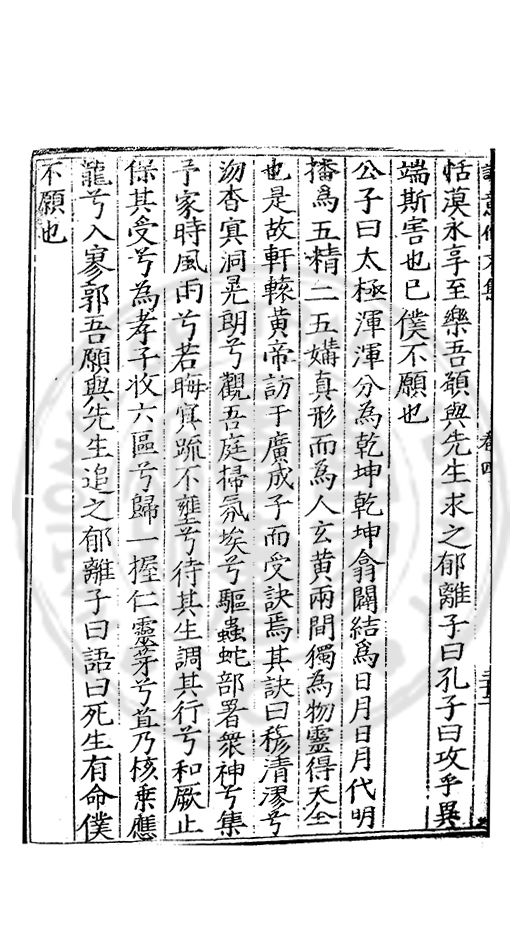 恬漠永享至樂吾願與先生求之郁離子曰孔子曰攻乎異
端斯害也已僕不願也
公子曰太極渾渾分為乾坤乾坤翕闢結為日月日月代明
播為五精二五媾真形而為人玄黃兩間獨為物靈得天全
也是故軒轅黃帝訪于廣成子而受訣焉其訣曰穆清漻兮
沕杳冥洞晃朗兮觀吾庭掃氛埃兮驅蟲蛇部署衆神兮集
予家時風雨兮若晦冥疏不壅兮待其生調其行兮和厥止
保其受兮為孝子收六區兮歸一握仁靈芽兮葚乃核乗應
龍兮入寥郭吾願與先生追之郁離子曰語曰死生有命僕
不願也
卷四